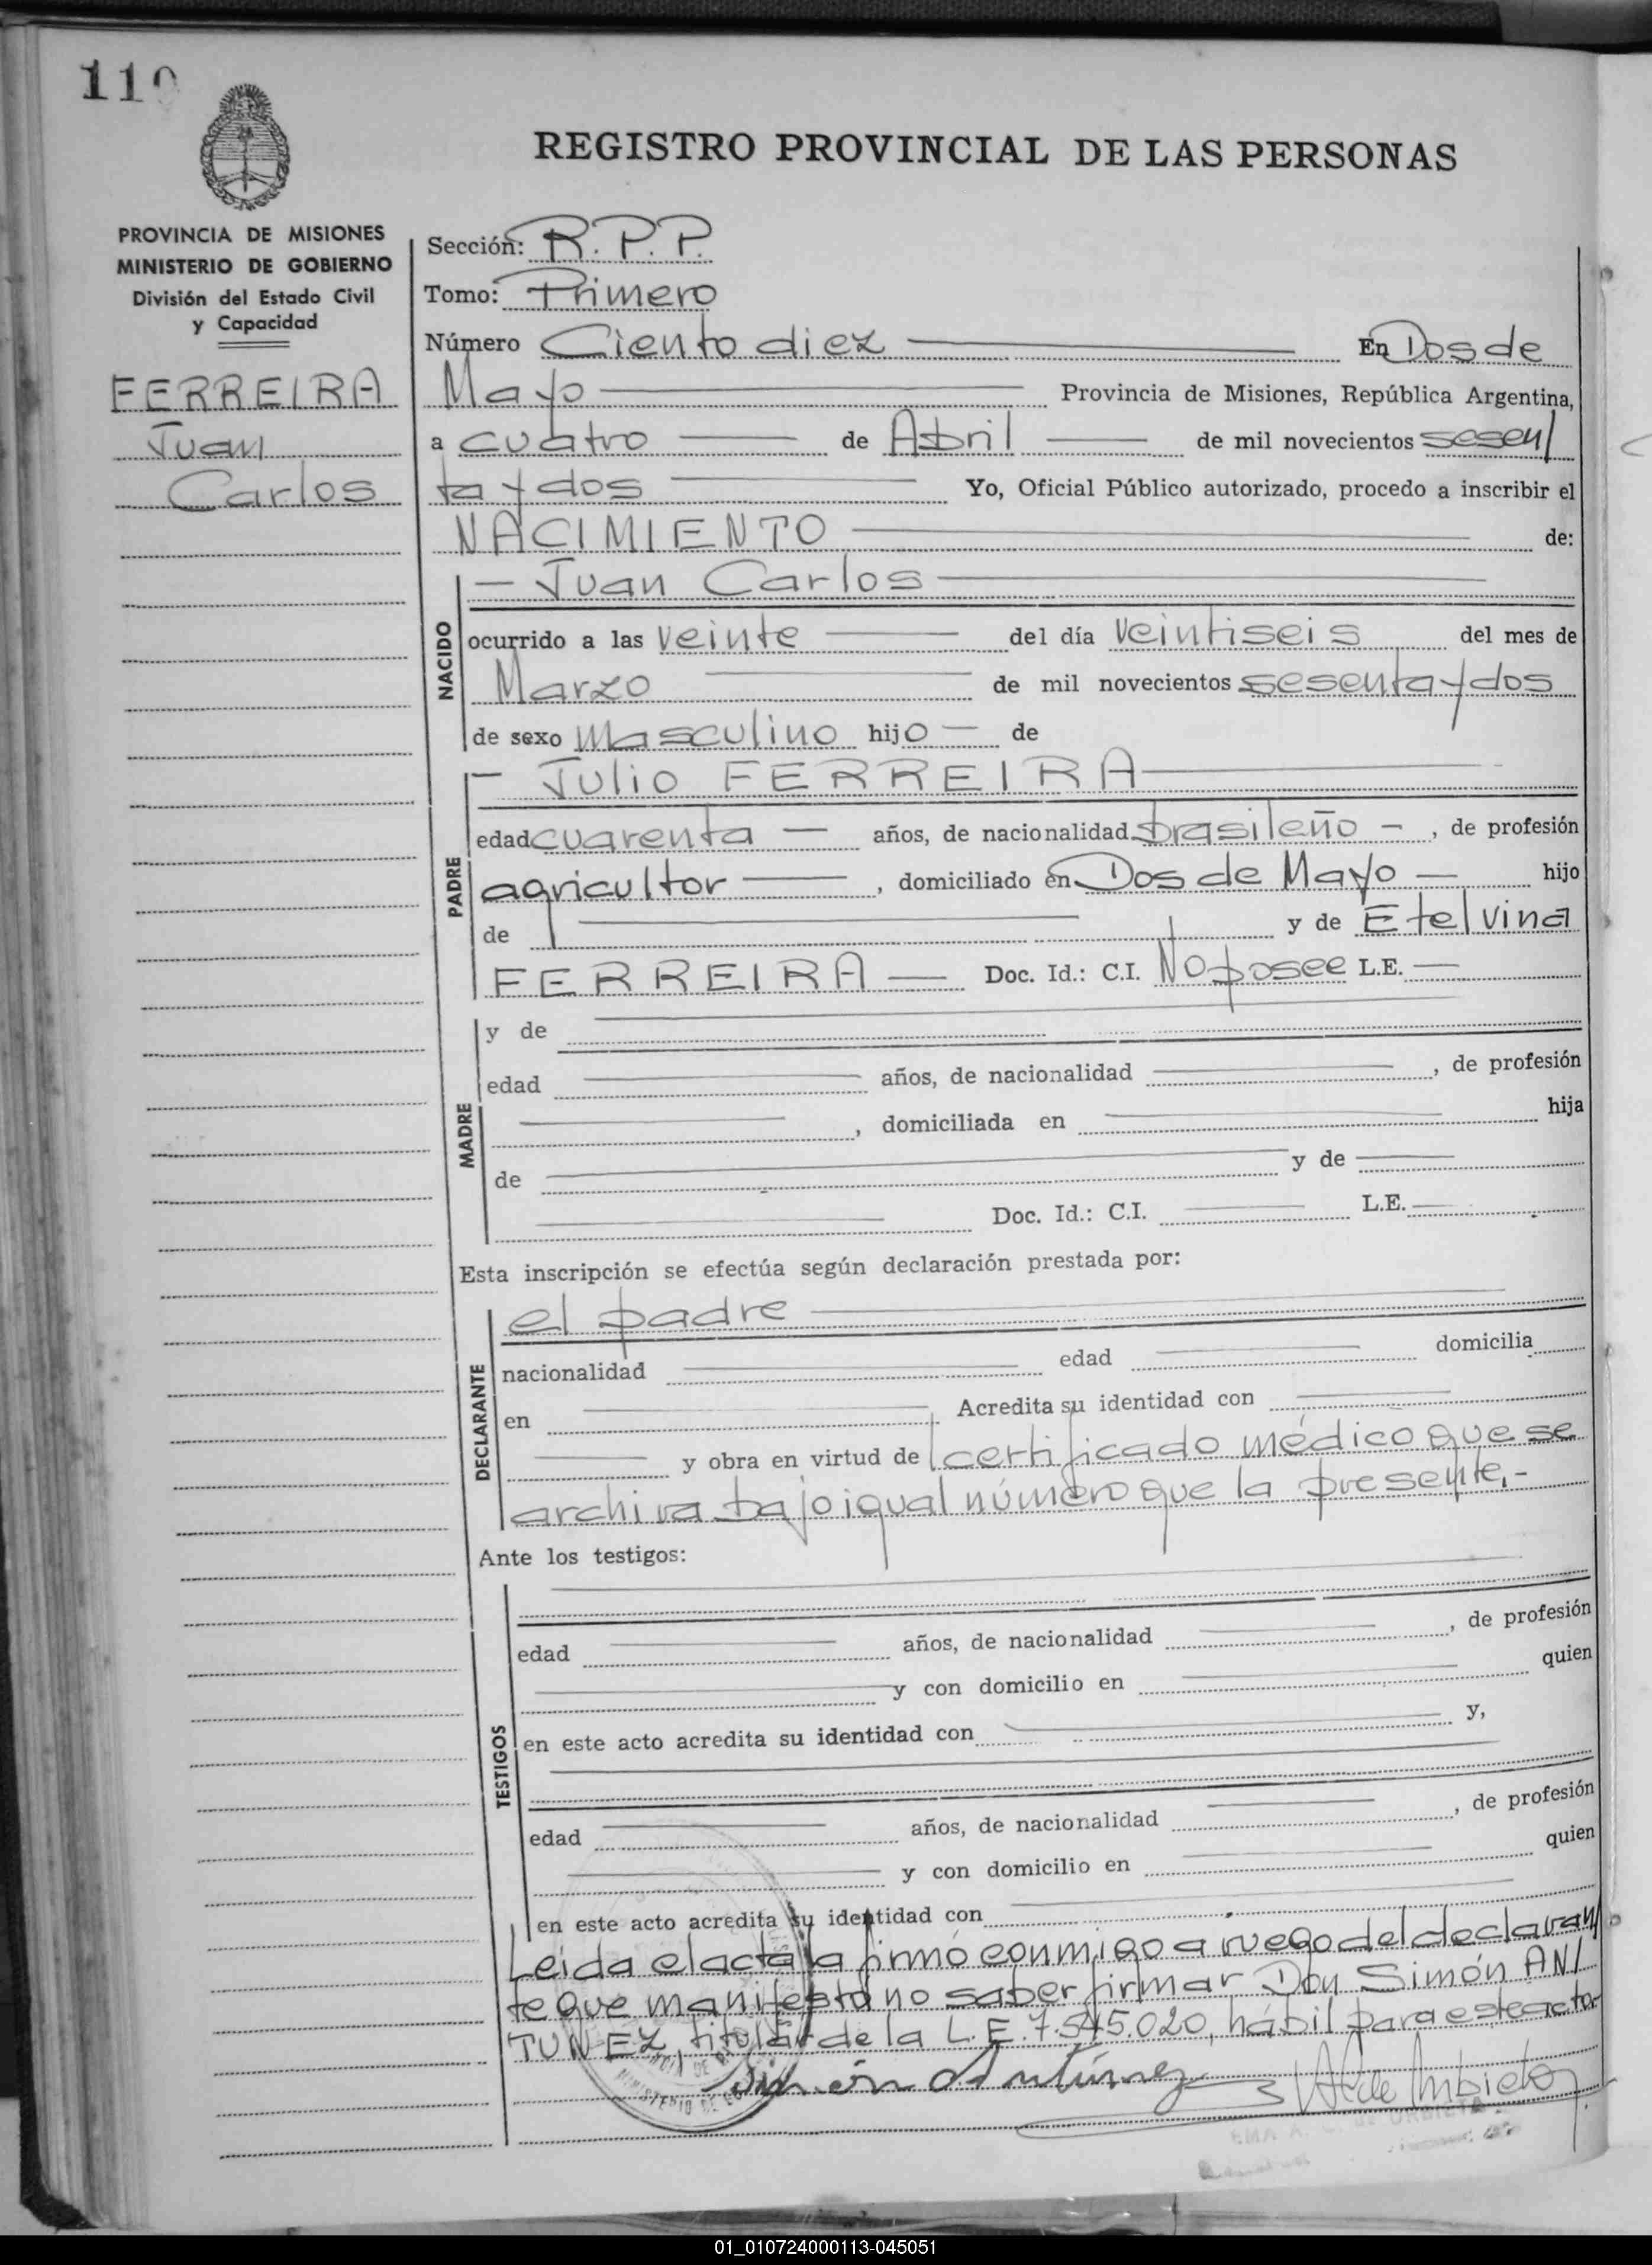 110
REGISTRO PROVINCIAL DE LAS PERSONAS
PROVINCIA DE MISIONES
MINISTERIO DE GOBIERNO
División del Estado Civil
y Capacidad
FERREIRA
Juan
Carlos
Sección: R.P.P.
Tomo: Primero
Número Ciento diez En Dos de
Mayo Provincia de Misiones, República Argentina,
a cuatro de Abril de mil novecientos sesen/
ta y dos Yo, Oficial Público autorizado, procedo a inscribir el
NACIMIENTO de:
NACIDO
— Juan Carlos
ocurrido a las veinte del día veintiseis del mes de
Marzo de mil novecientos sesenta y dos
de sexo masculino hijo — de
PADRE
— Julio FERREIRA
edad cuarenta — años, de nacionalidad brasileño - , de profesión
agricultor , domiciliado en Dos de Mayo — hijo
de y de Etelvina
FERREIRA — Doc. Id.: C.I. No posee L.E. —
MADRE
y de
edad años, de nacionalidad , de profesión
, domiciliada en hija
de y de
Doc. Id.: C.I. L.E.
Esta inscripción se efectúa según declaración prestada por:
DECLARANTE
el padre
nacionalidad edad domicilia
en Acredita su identidad con
y obra en virtud de certificado médico que se
archiva bajo igual número que la presente.-
Ante los testigos:
TESTIGOS
edad años, de nacionalidad , de profesión
y con domicilio en quien
en este acto acredita su identidad con y,
edad años, de nacionalidad , de profesión
y con domicilio en quien
en este acto acredita su identidad con
Leída el acta la firmó conmigo a ruego del declaran/
te que manifestó no saber firmar Don Simón AN/
TUNEZ, titular de la L.E. 7.545.020, hábil para este acto
Simón Antúnez
MINISTERIO DE
01_010724000113-045051